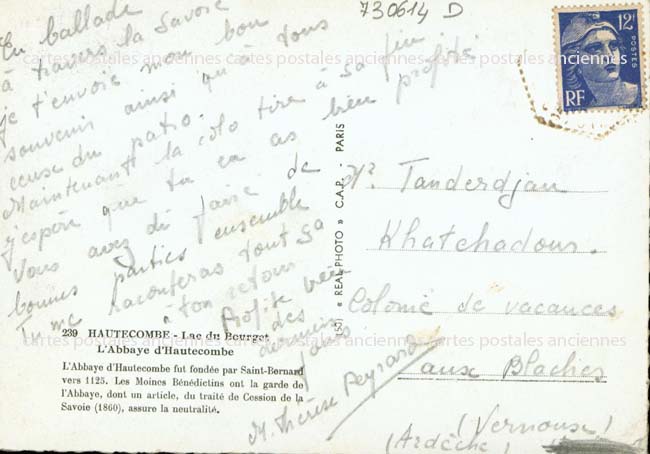 730614 D
En ballade
à travers la Savoie
je t'envoie mon bon
souvenir ainsi qu'à tous
ceux du patro.
Maintenant la colo tire à sa fin
j'espère que tu en as bien profité
Vous avez dû faire de
bonnes parties ensemble
Tu me raconteras tout ça
à ton retour
Profite bien
des
derniers
jours
M. Thérèse Peyrard
239 HAUTECOMBE - Lac du Bourget
L'Abbaye d'Hautecombe
L'Abbaye d'Hautecombe fut fondée par Saint-Bernard
vers 1125. Les Moines Bénédictins ont la garde de
l'Abbaye, dont un article, du traité de Cession de la
Savoie (1860), assure la neutralité.
« REAL-PHOTO » C.A.P. - PARIS
12F
POSTES
RF
Mr Tanderdjan
Khatchadour.
Colonie de vacances
aux Blaches
(Vernoux)
(Ardèche)
cartes postales anciennes cartes postales anciennes cartes postales anciennes
cartes postales anciennes cartes postales anciennes cartes postales anciennes